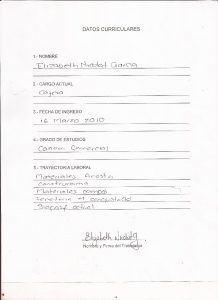 DATOS CURRICULARES
1.- NOMBRE
Elizabeth
2.- CARGO ACTUAL
Cajera
3.- FECHA DE INGRESO
16 Marzo 2010
4.- GRADO DE ESTUDIOS
Carrera Comercial
5.- TRAYECTORIA LABORAL
Materiales Acosta
Construrama
Materiales
Secretaria
actual
Elizabeth
Nombre y Firma del Trabajador